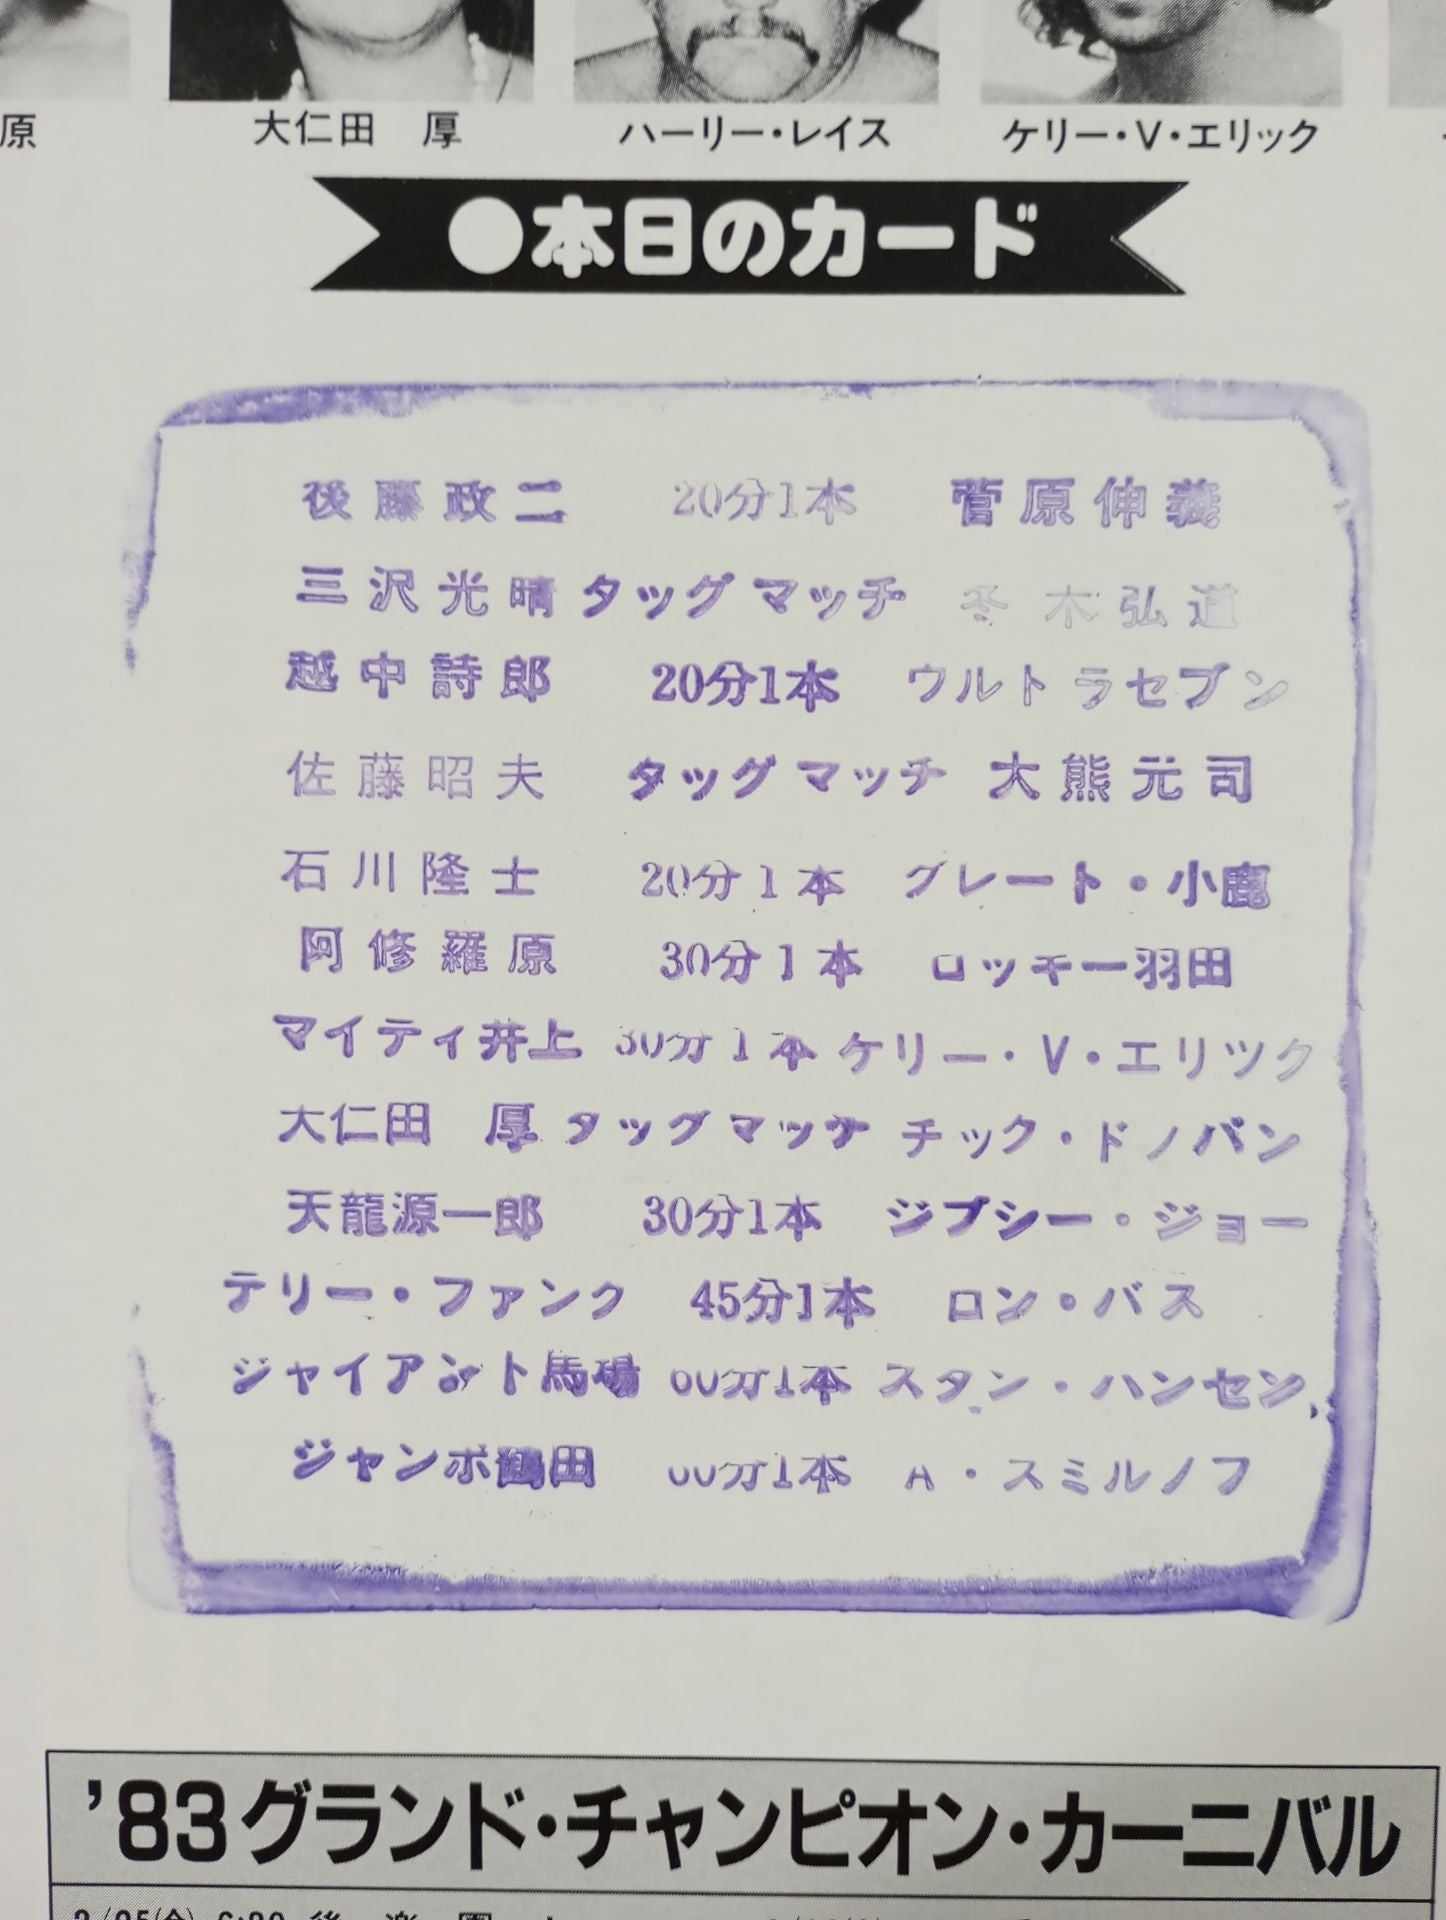 原
大仁田 厚
ハーリー・レイス
ケリー・V・エリック
●本日のカード
後藤政二 20分1本 菅原伸義
三沢光晴 タッグマッチ 冬木弘道
越中詩郎 20分1本 ウルトラセブン
佐藤昭夫 タッグマッチ 大熊元司
石川隆士 20分1本 グレート・小鹿
阿修羅原 30分1本 ロッキー羽田
マイティ井上 30分1本 ケリー・V・エリツク
大仁田 厚 タッグマッチ チック・ドノバン
天龍源一郎 30分1本 ジプシー・ジョー
テリー・ファンク 45分1本 ロン・バス
ジャイアント馬場 60分1本 スタン・ハンセン
ジャンボ鶴田 60分1本 A・スミルノフ
'83グランド・チャンピオン・カーニバル